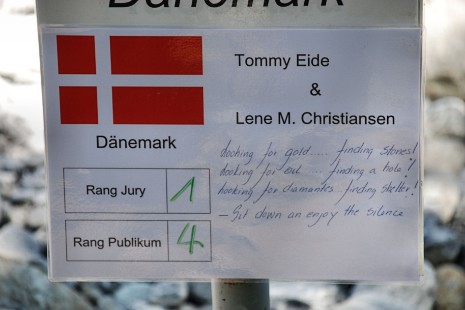 Dänemark
Tommy Eide
&
Lene M. Christiansen
Dänemark
looking for gold .... finding stones!
looking for oil .... finding a hole!
looking for diamantes .. finding shelter!
- Sit down an enjoy the silence
Rang Jury 1
Rang Publikum 4